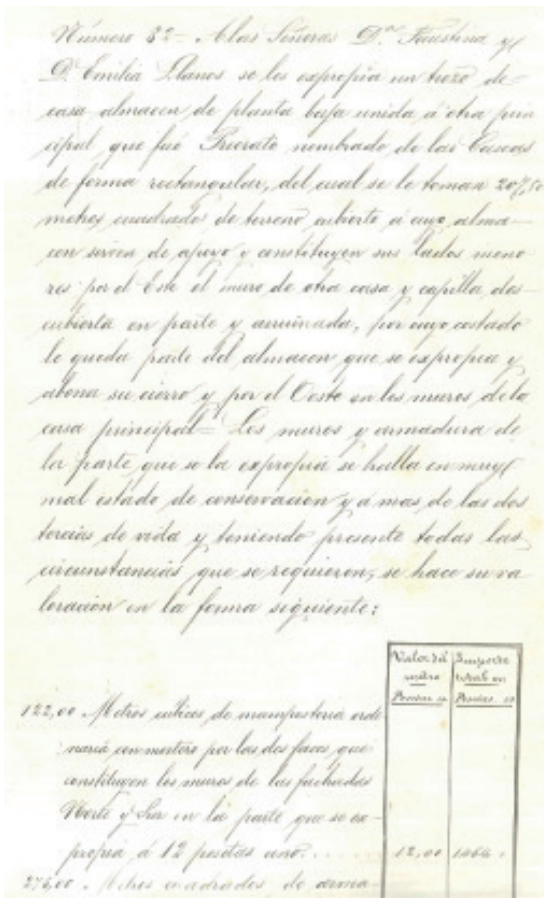 Número 32= A las Señoras D.ª Faustina y
D. Emilia Llanos se les expropia un trozo de
casa almacen de planta baja unida á otra prin
cipal que fué Priorato nombrado de las Cuscas
de forma rectangular, del cual se le toman 207,50
metros cuadrados de terreno cubierto á cuyo alma-
cen sirven de apoyo y constituyen sus lados meno
res por el Este el muro de otra casa y capilla des-
cubierta en parte y arruinada, por cuyo costado
le queda parte del almacen que se expropia y
abona su cierro y por el Oeste en los muros de la
casa principal= Los muros y armadura de
la parte que se la expropia se halla en muy
mal estado de conservacion y á mas de las dos
tercias de vida y teniendo presente todas las
circunstancias que se requieren, se hace su va
loracion en la forma siguiente:
Valor del metro Pesetas cs
Importe total en Pesetas cs
122,00 Metros cúbicos de mamposteria ordi
naria con mortero por las dos faces que
constituyen los muros de las fachadas
Norte y Sur en la parte que se ex-
propia á 12 pesetas uno..... 12,00 1464
276,00 Metros cuadrados de arma-